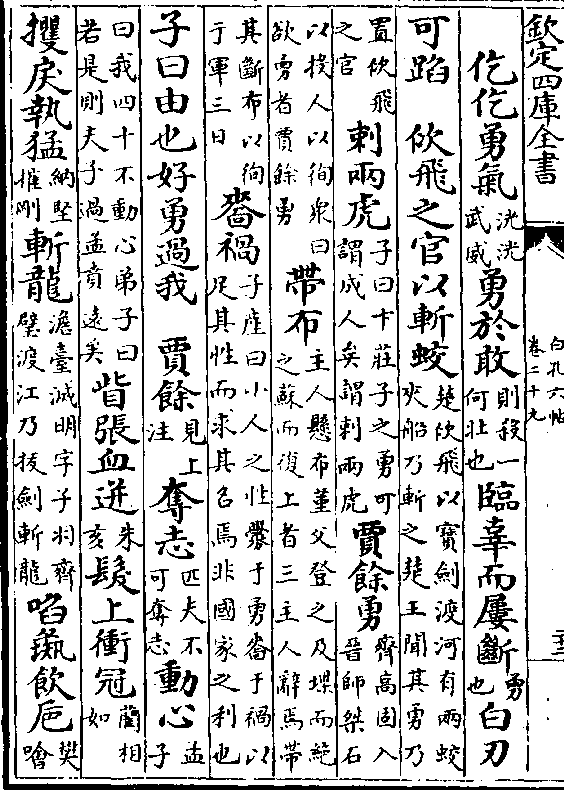 欽定四庫全書
白孔六帖
卷二十九
仡仡勇氣洸洸武威勇於敢則殺一何壯也臨辜而屢斷勇也白刃
可蹈 佽飛之官以斬蛟楚佽飛以寶劍渡河有兩蛟夾船乃斬之楚王聞其勇乃
置佽飛之官刺兩虎子曰卞莊子之勇可謂成人矣謂刺兩虎賈餘勇齊高固入晉師桀石
以投人以徇衆曰欲勇者賈餘勇帶布主人懸布堇父登之及堞而絕之蘇而復上者三主人辭焉帶
其斷布以徇于軍三日嗇禍子産曰小人之性釁于勇嗇于禍以足其性而求其名焉非國家之利也
子曰由也好勇過我 賈餘見上注奪志匹夫不可奪志動心孟子
曰我四十不動心弟子曰若是則夫子過孟賁遠矣眥張血迸朱亥髮上衝冠藺相如
攫戾執猛納堅摧剛斬龍澹臺滅明字子羽齎璧渡江乃拔劍斬龍啗彘飲巵樊噲